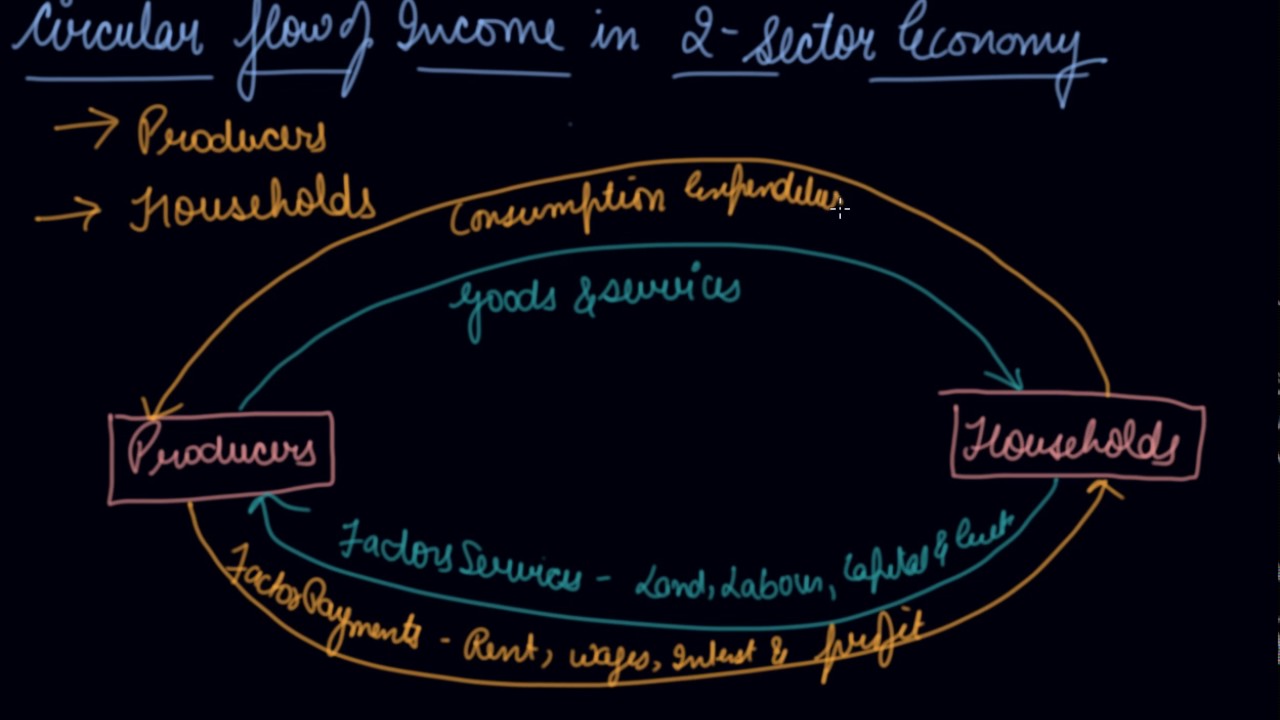 Circular flow of Income in 2-Sector Economy
→ Producers
→ Households
Consumption
Goods & services
Producers
Households
Factors Services - Land, Labour, Capital &
Factor Payments - Rent, wages, Interest & profit